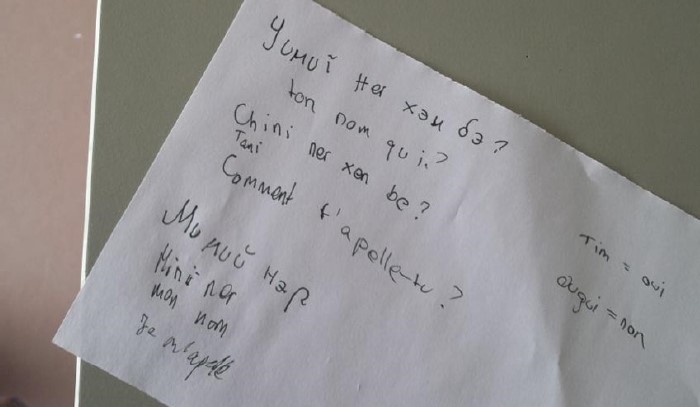 Чиний нэг хэн бэ?
ton nom qui?
Chini ner xen be?
Tani
Comment t'apelle-tu?
Миний нэр
Mini ner
mon nom
Je m'apelle
Tim = oui
ougui = non